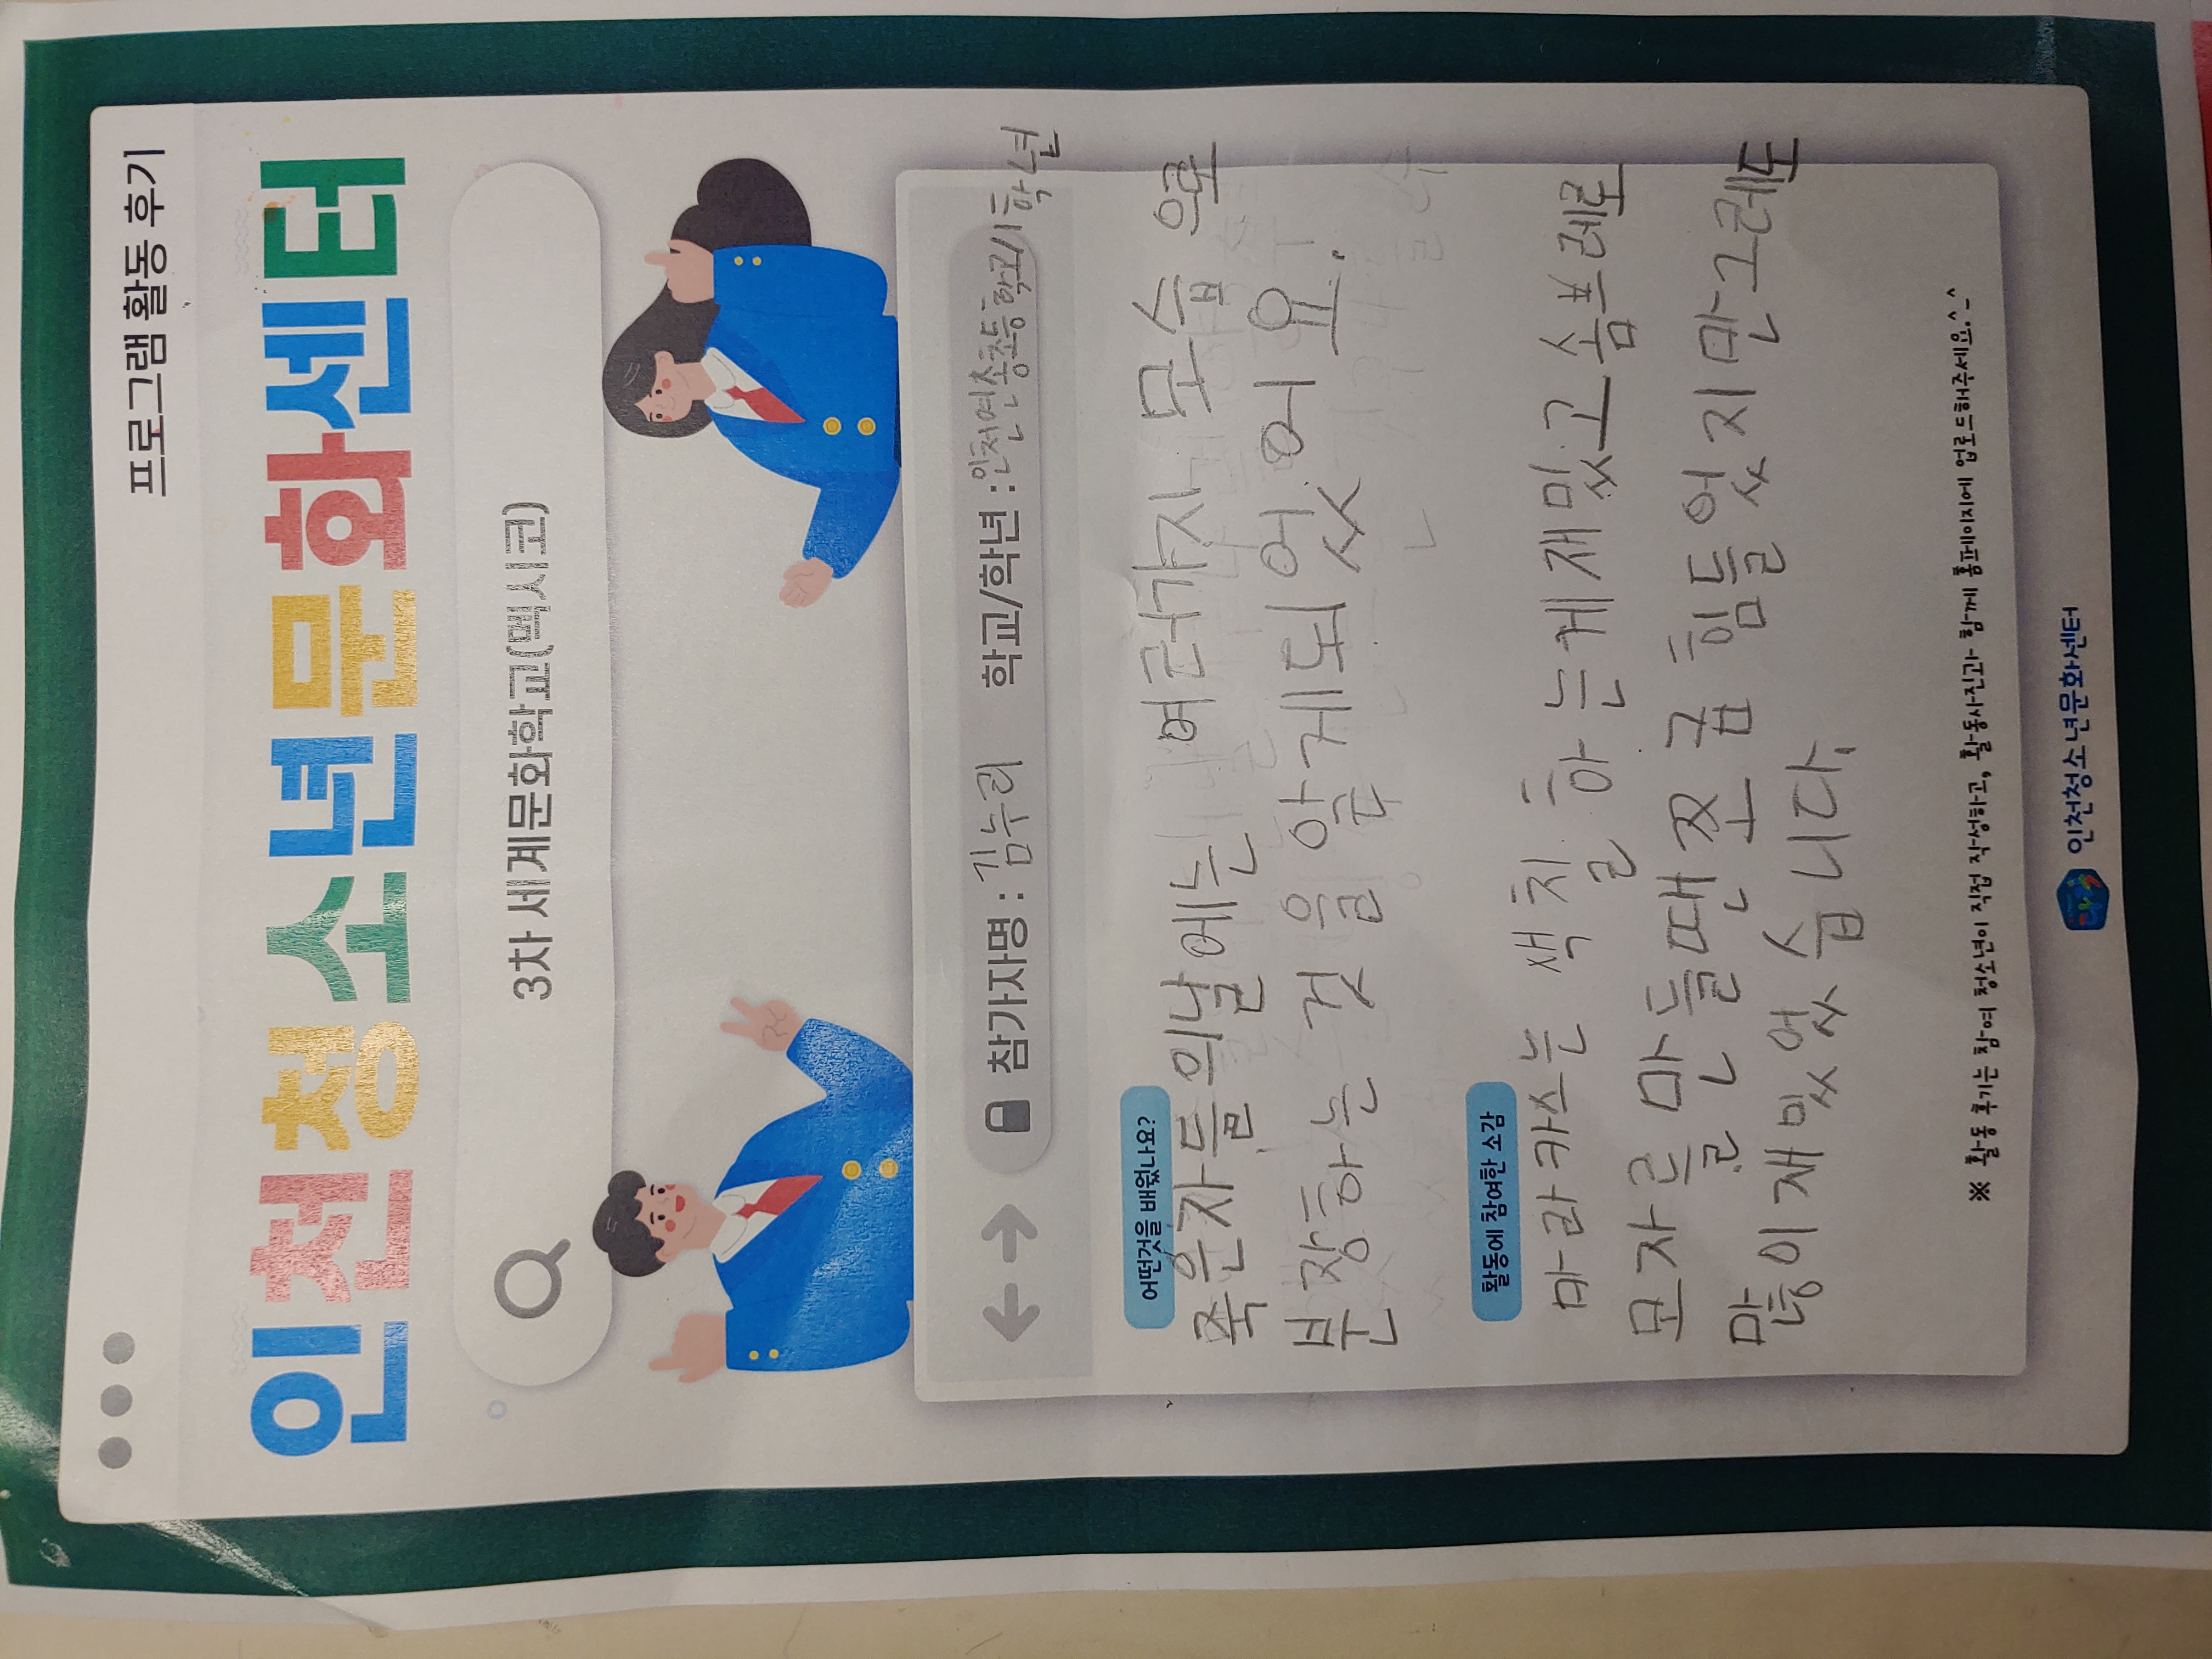 프로그램 활동 후기
인천청소년문화센터
3차 세계문화학교(멕시코)
참가자명 : 김누리 학교/학년 : 인천연송초등학교/1학년
어떤것을 배웠나요?
죽은자들의날에는 여러가지 모습으로
분장하는 것을 알게되었어요.
활동에 참여한 소감
마라카스는 색칠하는게재밌고솜브레로
모자를만들땐쪼금힘들었지만그레도
많이재밌었습니다.
※ 활동 후기는 참여 청소년이 직접 작성하고, 활동사진과 함께 홈페이지에 업로드해주세요.^_^
인천청소년문화센터